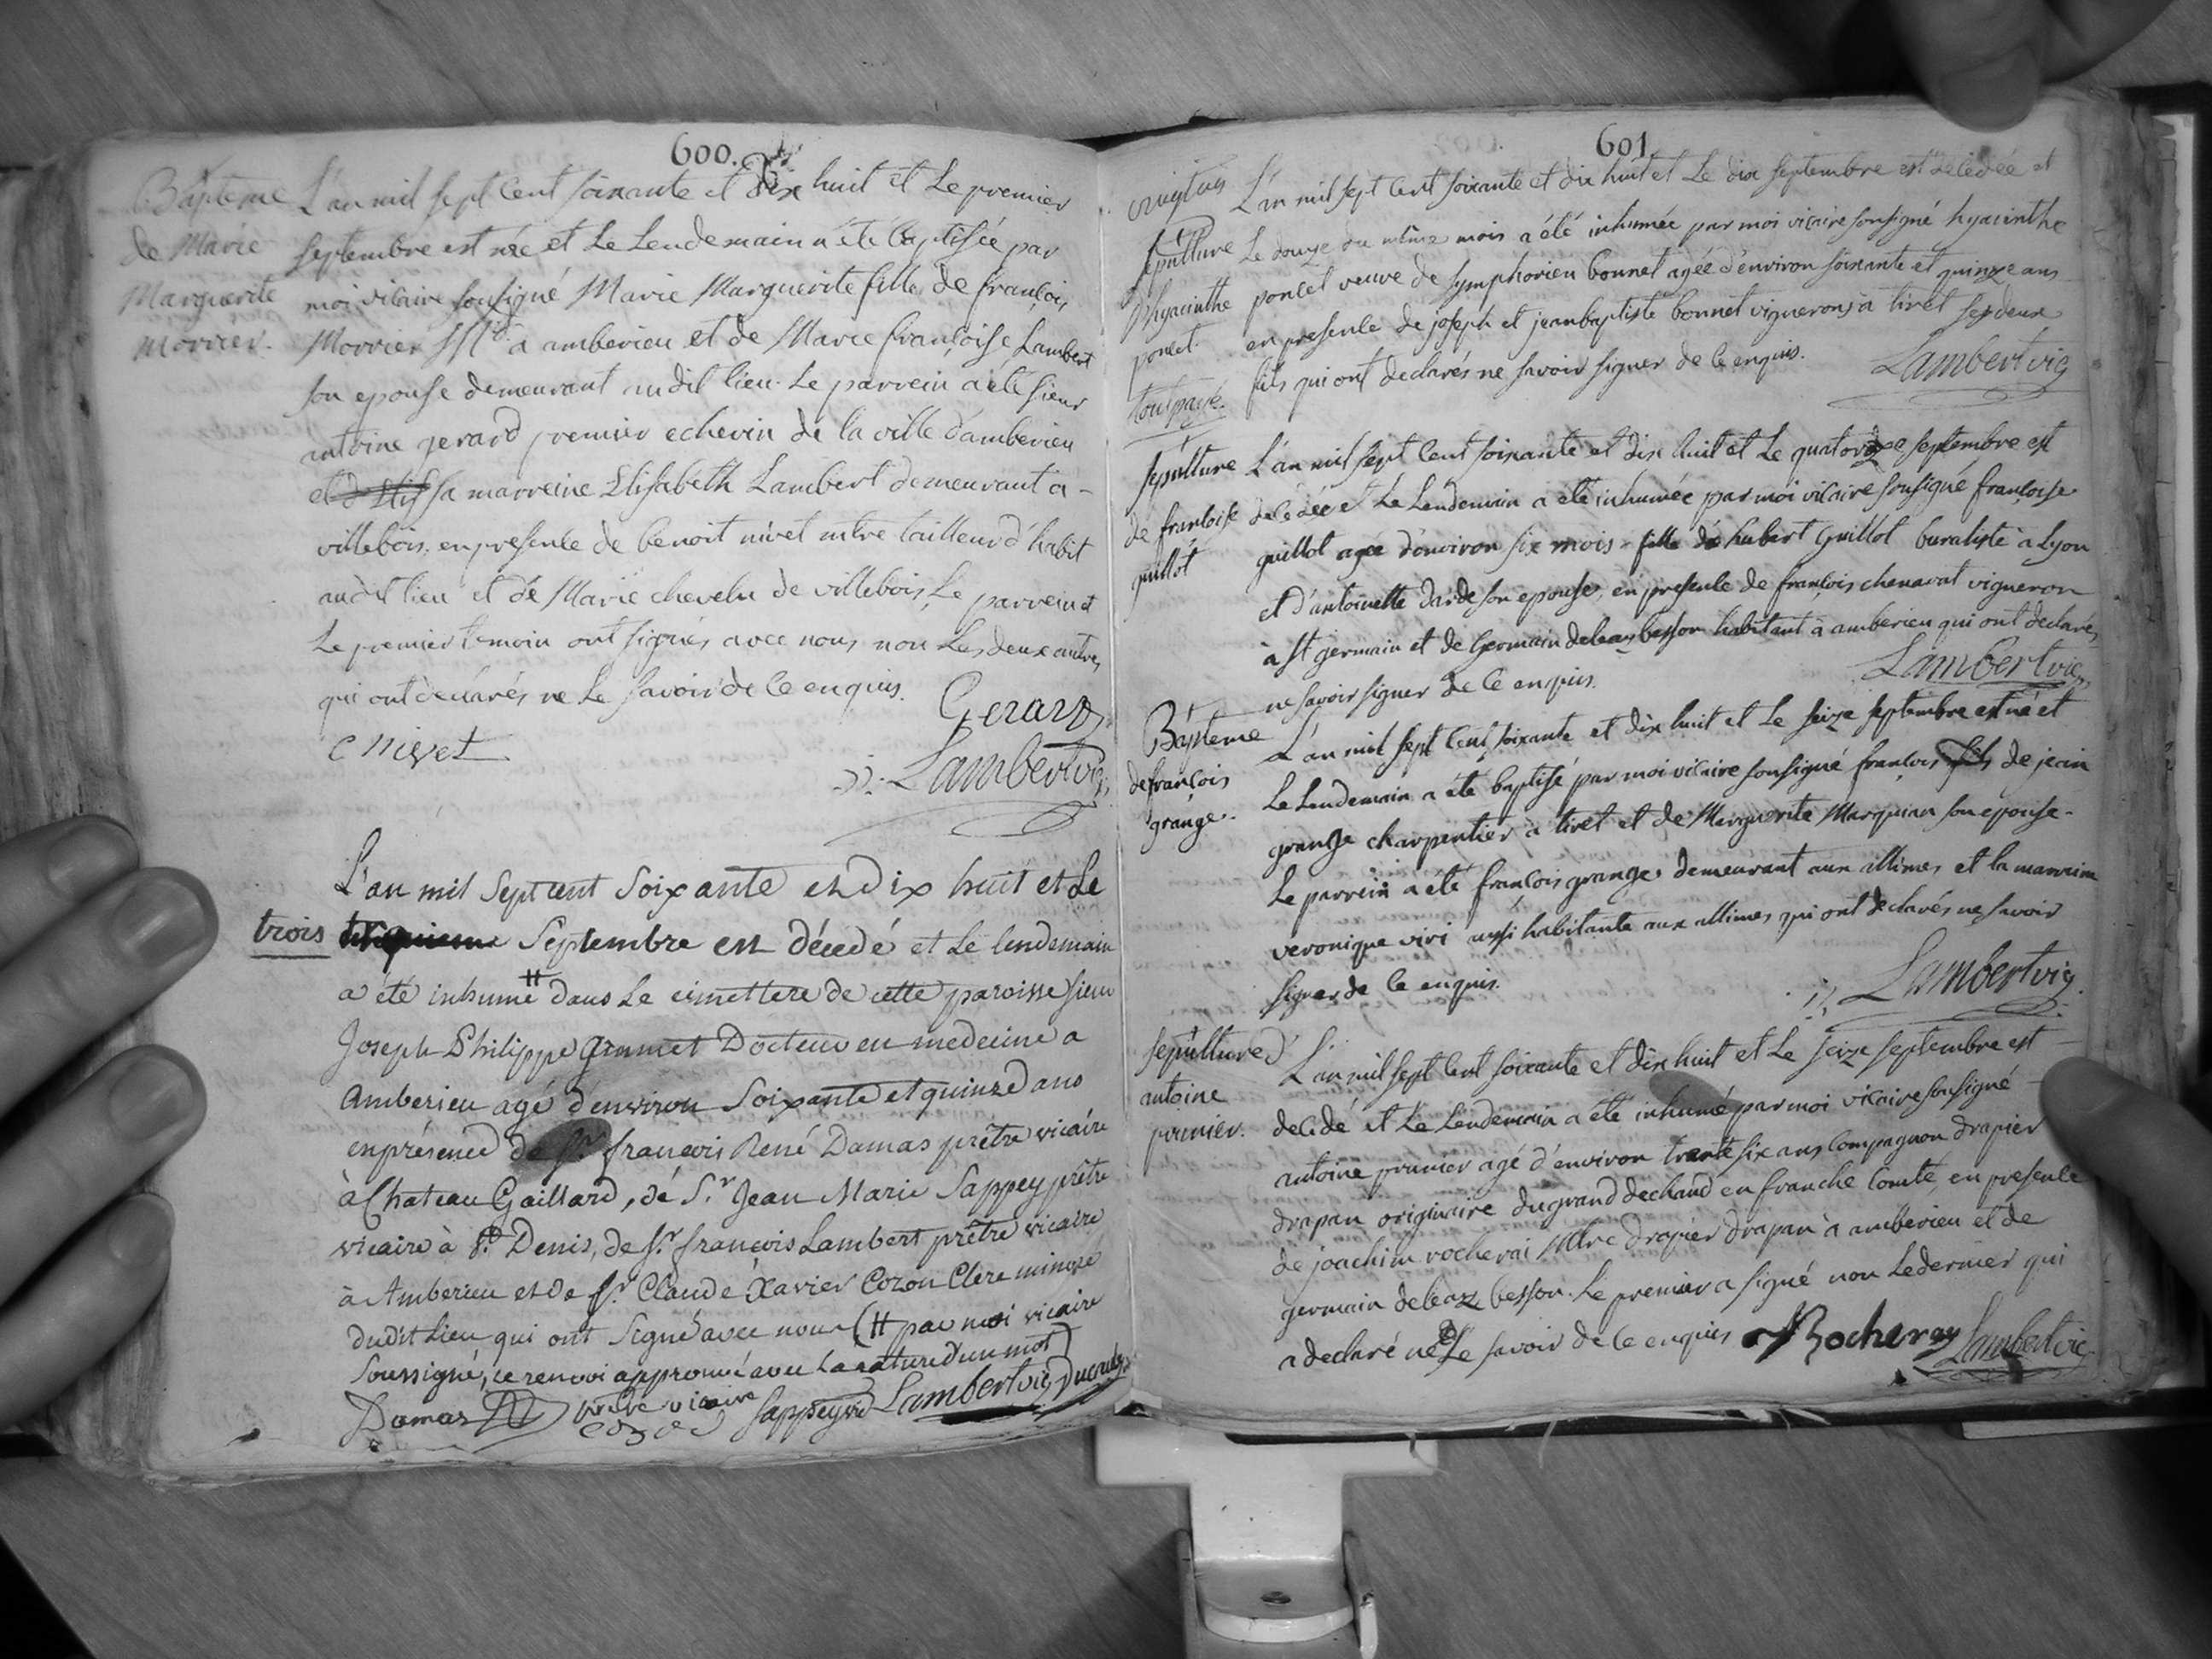 600.
Bapteme
de Marie
Marguerite
Morrier.
L'an mil sept cent soixante et dix huit et Le premier
septembre est née et Le Lendemain a été baptisée par
moi vicaire sousigné Marie Marguerite fille de françois
Morrier Md a amberieu et de Marie françoise Lambert
son epouse demeurant audit lieu. Le parrein a été sieur
antoine gerard premier echevin de la ville d'amberieu
et sa marreine Elisabeth Lambert demeurant a
villebois, en presence de benoit nivet mtre tailleur d'habit
audit lieu et de Marie chevelu de villebois, Le parrein et
Le premier temoin ont signés avec nous non Les deux autres
qui ont declarés ne Le savoir de ce enquis.
Gerard
C Nivet
Lambert vic
L'an mil Sept cent Soixante et dix huit et Le
trois
Septembre est décedé et Le lendemain
a été inhumé # dans Le cimettere de cette paroisse sieur
Joseph Philippe Grumet Docteur en medecine a
Amberieu agé d'environ Soixante et quinze ans
en présence de Sr. françois René Damas prêtre vicaire
à Chateau Gaillard, de S.r Jean Marie Sappey prêtre
vicaire à St. Denis, de Sr. françois Lambert prêtre vicaire
à Amberieu et de Sr. Claude Xavier Cozon Clerc minoré
dudit Lieu qui ont Signé avec nous (# par moi vicaire
Soussigné, ce renvoi approuvé avec la rature d'un mot)
Damas prêtre vicaire Sappey vic Lambert vic
cozon
601
Sepulture
D'hyacinthe
poncet.
tout payé.
L'an mil sept cent soixante et dix huit et Le dix septembre est décédée et
Le douze du même mois a été inhumée par moi vicaire sousigné hyacinthe
poncet veuve de symphorien bonnet agée d'environ soixante et quinze ans
en presence de joseph et jean baptiste bonnet vignerons à tiret ses deux
fils qui ont declarés ne savoir signer de ce enquis.
Lambert vic
Sepulture
de francoise
guillot
L'an mil sept cent soixante et dix huit et Le quatorze septembre est
decédée et Le Lendemain a été inhumée par moi vicaire sousigné francoise
guillot agée d'environ six mois fille de hubert Guillot buraliste à Lyon
et d'antoinette darde son epouse, en presence de françois chenavat vigneron
à St germain et de Germain deleaz besson habitant à amberieu qui ont declarés
ne savoir signer de ce enquis.
Lambert vic
Bapteme
de françois
grange.
L'an mil sept cent soixante et dix huit et Le seize septembre est né et
Le Lendemain a été baptisé par moi vicaire sousigné françois fils de jean
grange charpentier à tiret et de Marguerite Marquian son epouse.
Le parrein a été françois grange demeurant aux allimes et la marreine
veronique viri aussi habitante aux allimes qui ont declarés ne savoir
signer de ce enquis.
Lambert vic
Sepulture d'
antoine
prunier.
L'an mil sept cent soixante et dix huit et Le seize septembre est
decedé et Le Lendemain a été inhumé par moi vicaire sousigné
antoine prunier agé d'environ trente six ans compagnon drapier
drapan originaire du grand dechaud en franche Comté, en presence
de joachim rocherai Mtre drapier drapan à amberieu et de
germain deleaz besson. Le premier a signé non Le dernier qui
a declaré ne Le savoir de ce enquis
Rocheray
Lambert vic